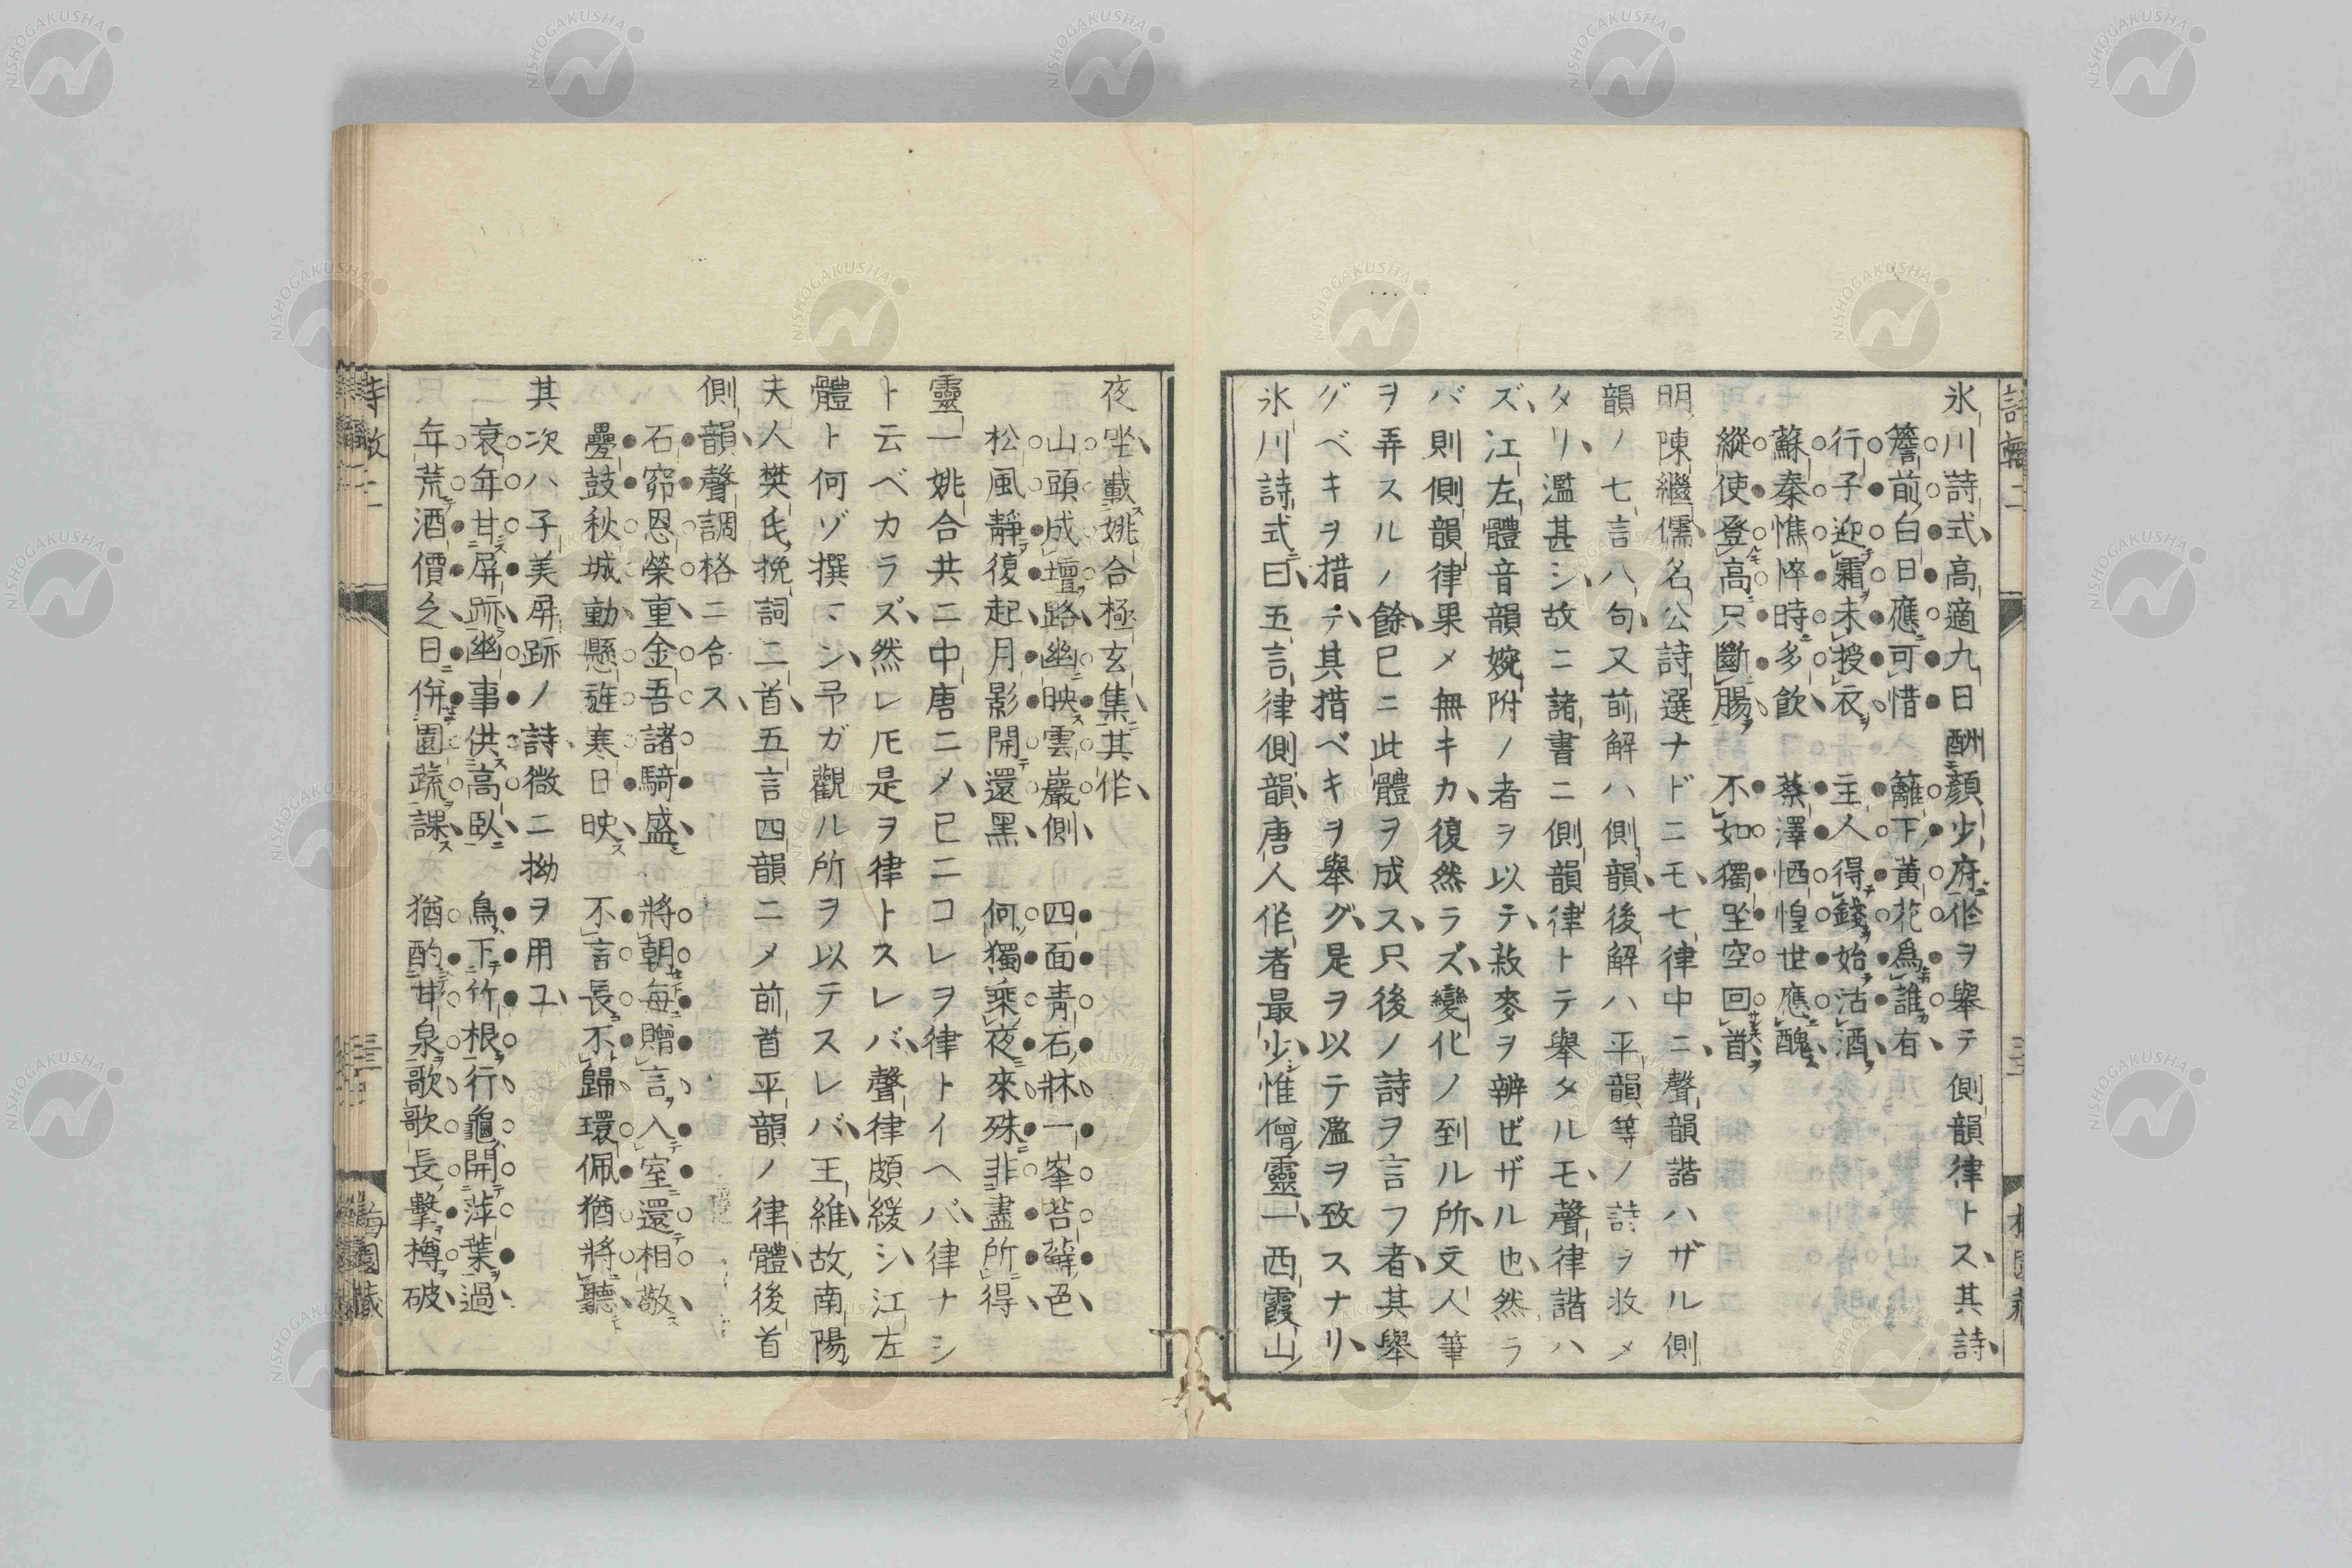 氷川詩式高適九日酬顔少府作ヲ舉テ側韻律トス其詩
簷前白日應可惜　籬下黄花爲誰有
行子迎霜未授衣　主人得錢始沽酒
蘇秦憔悴時多飲　蔡澤恓惶世應醜
縱使登高只斷腸　不如獨坐空回首
明陳繼儒名公詩選ナドニモ七律中ニ聲韻諧ハザル側
韻ノ七言八句又前解ハ側韻後解ハ平韻等ノ詩ヲ收メ
タリ濫甚シ故ニ諸書ニ側韻律トテ舉タルモ聲律諧ハ
ズ江左體音韻婉附ノ者ヲ以テ菽麥ヲ辨ゼザル也然ラ
バ則側韻律果メ無キカ復然ラズ變化ノ到ル所文人筆
ヲ弄スルノ餘已ニ此體ヲ成ス只後ノ詩ヲ言フ者其舉
グベキヲ措テ其措ベキヲ舉グ是ヲ以テ濫ヲ致スナリ
氷川詩式曰五言律側韻唐人作者最少惟僧靈一西霞山
夜坐載姚合極玄集其作
山頭成壇路幽映雲巖側　四面青石牀一峯苔蘚色
松風靜復起月影開還黑　何獨乘夜來殊非盡所得
靈一姚合共ニ中唐ニメ已ニコレヲ律トイヘバ律ナシ
ト云ベカラズ然レ𪜈是ヲ律トスレバ聲律頗緩シ江左
體ト何ゾ撰マン予ガ觀ル所ヲ以テスレバ王維故南陽
夫人樊氏挽詞二首五言四韻ニメ前首平韻ノ律體後首
側韻聲調格ニ合ス
石窌恩榮重金吾諸騎盛　將朝每贈言入室還相敬
疊鼓秋城動懸旌寒日映　不言長不歸環佩猶將聽
其次ハ子美屏跡ノ詩微ニ拗ヲ用ユ
衰年甘屏跡幽事供高臥　鳥下竹根行龜開萍葉過
年荒酒價乏日併園蔬課　猶酌甘泉歌歌長擊樽破